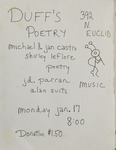 DUFF'S
POETRY
392
N.
EUCLID
michael & jan castro
shirley leflore
poetry
j.d. parran
alan suits
music
monday jan. 17
8:00
Donation $1.50